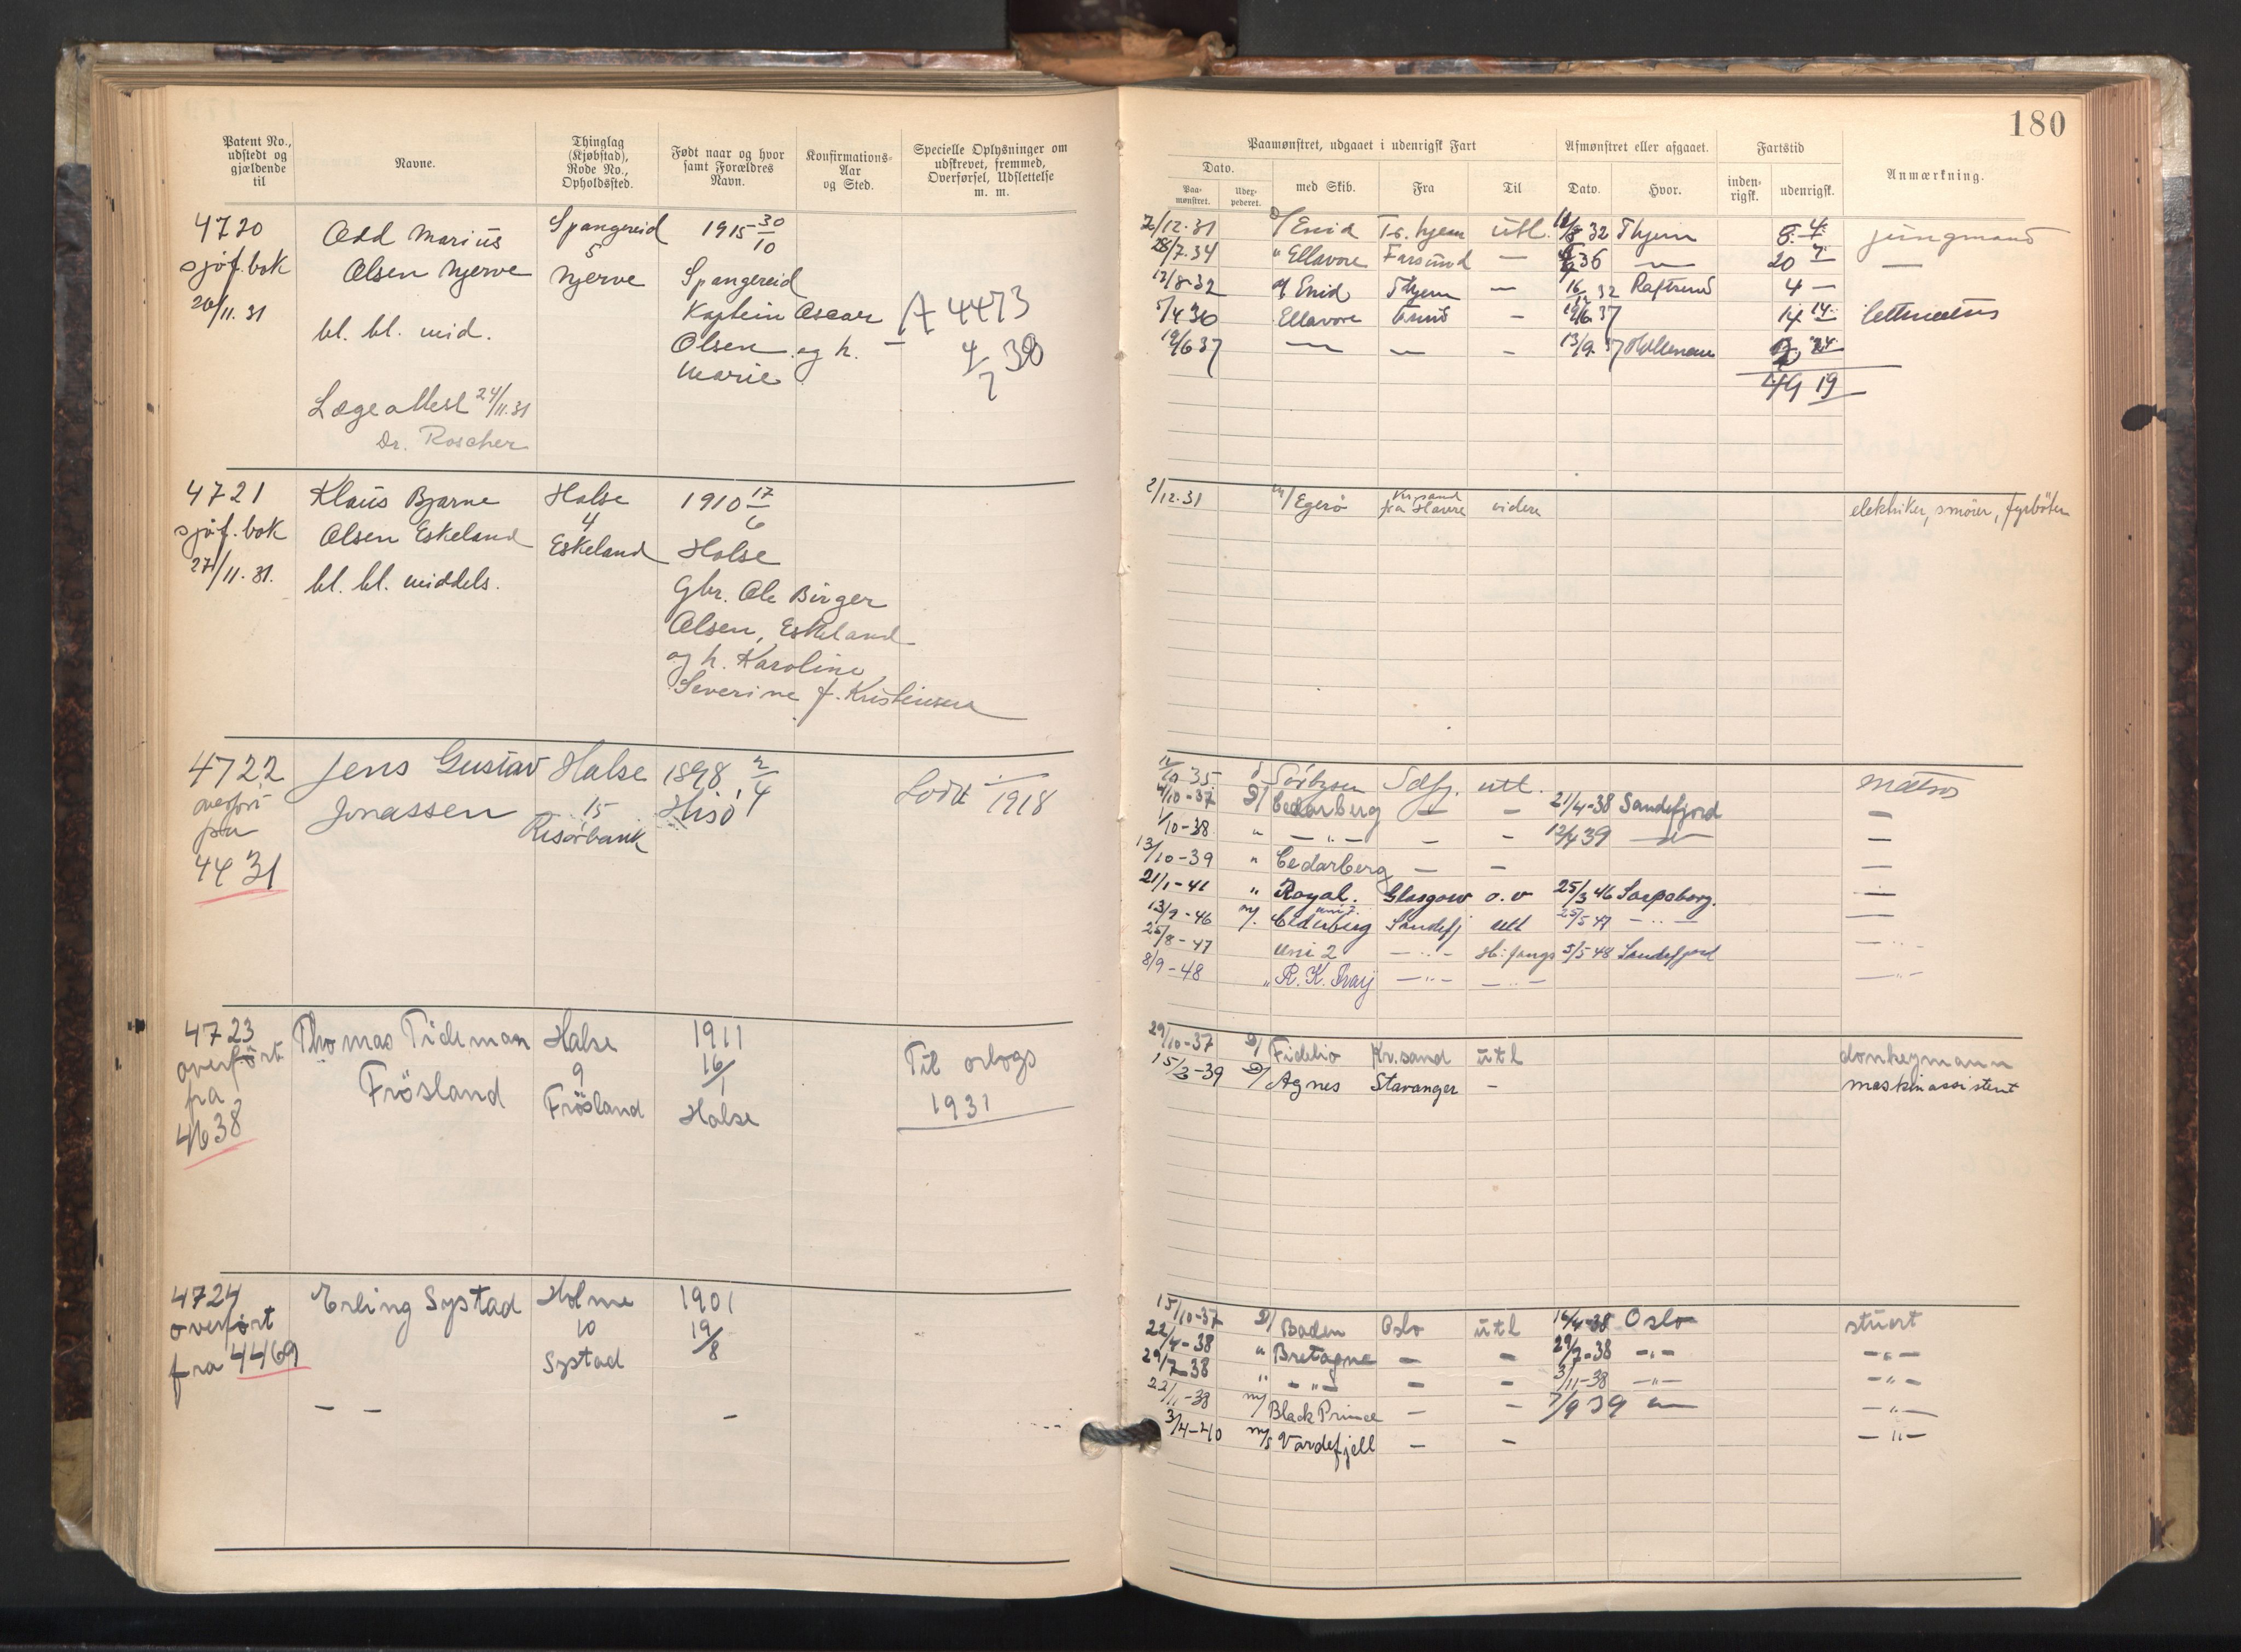 180
Patent No., udstedt og gjældende til
Navne.
Thinglag (Kjøbstad), Rode No., Opholdssted.
Født naar og hvor samt Forældres Navn.
Konfirmations-Aar og Sted.
Specielle Oplysninger om udskrevet, fremmed, Overførsel, Udslettelse m. m.
Paamønstret, udgaaet i udenrigsk Fart
Dato.
Paa-mønstret.
Uder-pederet.
med Skib.
Fra
Til
Afmønstret eller afgaaet.
Dato.
Hvor.
Fartstid
inden-rigsk.
udenrigsk.
Anmærkning.
4720
sjöf.bok
20/11.31
Odd Mariüs
Olsen Njerve
bl. bl. mid.
Lægeattest 24/11.31
Dr. Roscher
Spangereid
5
Njerve
1915 30/10
Spangereid
Kaptein Oscar
Olsen og h.
Marie
A 4473
4/7 38
2/12.31 D/ Enid T.s. hjem ütl. 32 Thjem 8 4 jüngmand
28/7.34 " Ellavore Farsünd — 36 — 20 7 —
13/8-32 Enid Thjem — 16/12 32 4 —
5/4 30 Ellavore — 19/6 37 14 14
19/6 37 — — — 13/9 37 24
49 19
4721
sjöf.bok
27/11.31.
Klaüs Bjarne
Olsen Eskeland
bl. bl. middels.
Halse
4
Eskeland
1910 17/6
Halse
Gbr. Ole Birger
Olsen, Eskeland
og h. Karoline
Severine f. Kristensen
2/12.31 m/ Egerö Kr.sand fra Havre videre elektriker, smörer, fyrböter
4722
overfört
fra
4431
Jens Gustav
Jonassen
Halse
15
Risörbank
1898 2/4
Hisö
1918
10-35 Sdfj. utl. matros
4/10-37 D/ Cedarberg — — 21/4-38 Sandefjord —
1/10-38 " — " — — — 12/4 39 — —
13/10-39 " Cedarberg — — —
21/1-41 " Royal. Glasgow o. v 25/3 46 Sarpsborg. —
13/9-46 m/ Cedarberg Sandefj utl 25/5 47 — " — —
25/8-47 Uni 2 — " — Hv: fangs 5/5 48 Sandefjord — " —
8/9-48 " R. K. — " — — " — — " —
4723
overfört
fra
4638
Thomas Tideman
Frösland
Halse
9
Frösland
1911
16/1
Halse
Til orlogs
1931
29/10-37 D/ Fidelio Kr.sand ütl donkeymann
15/2-39 D/ Agnes Stavanger — maskinassistent
4724
overfört
fra 4469
Erling Systad
Holme
10
Systad
1901
19/8
— —
—
15/10-37 D/ Baden Oslo ütl 16/4-38 Oslo stüert
22/4-38 " Bretagne — — 29/7-38 — " — — " —
29/7-38 " — " — — — 3/11-38 — " — — " —
22/11-38 m/ Black Prince — — 7/9 39 — — " —
3/4-40 m/s Vardefjell — — — " —